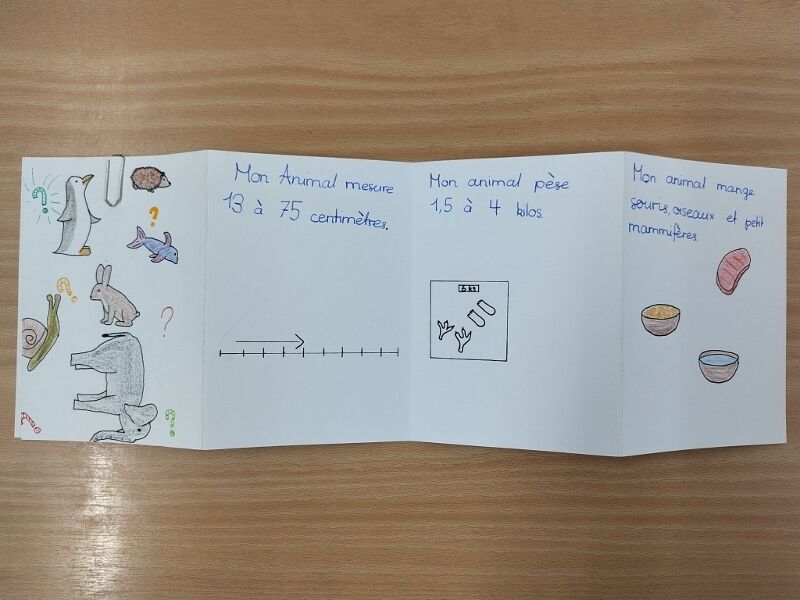 Mon Animal mesure
13 à 75 centimètres.
Mon animal pèse
1,5 à 4 kilos.
Mon animal mange
souris, oiseaux et petit
mammifères.
?
?
?
?
?
?